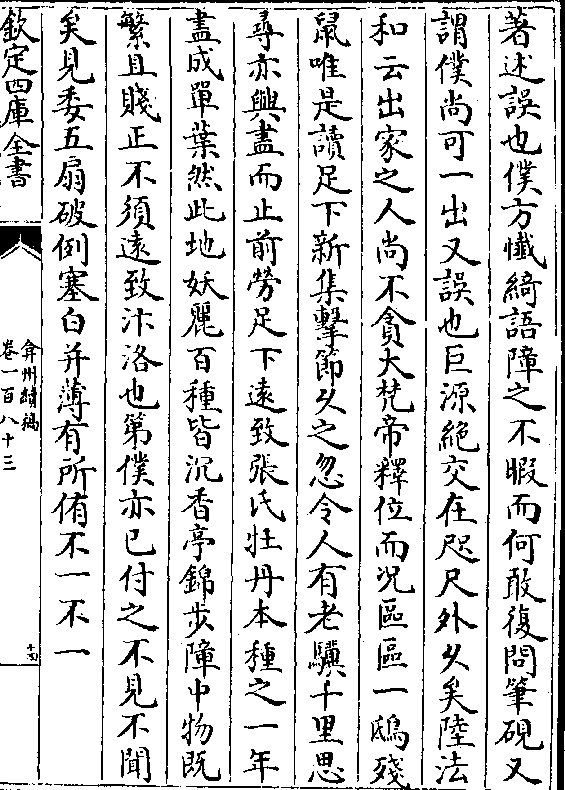 著述誤也僕方懺綺語障之不暇而何敢復問筆硯又
謂僕尚可一出又誤也巨源絶交在咫尺外久矣陸法
和云出家之人尚不貪大梵帝釋位而况區區一鴟殘
鼠唯是讀足下新集擊節久之忽令人有老驥千里思
尋亦興盡而止前勞足下遠致張氏牡丹本種之一年
盡成單葉然此地妖麗百種皆沉香亭錦步障中物既
繁且賤正不須遠致汴洛也第僕亦已付之不見不聞
矣見委五扇破例塞白并薄有所侑不一不一
欽定四庫全書
弇州續稿
卷一百八十三
十四